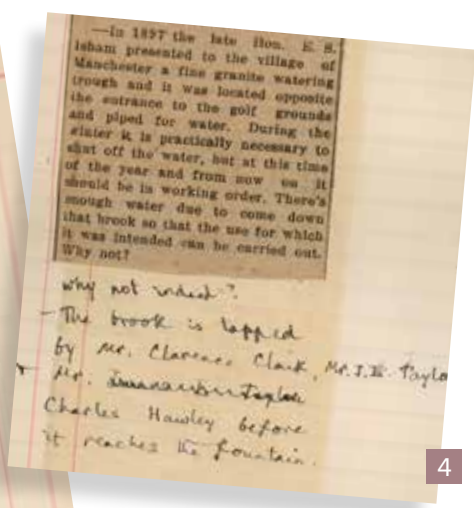 —In 1897 the late Hon. E. S.
Isham presented to the village of
Manchester a fine granite watering
trough and it was located opposite
the entrance to the golf grounds
and piped for water. During the
winter it is practically necessary to
shut off the water, but at this time
of the year and from now on it
should be in working order. There's
enough water due to come down
that brook so that the use for which
it was intended can be carried out.
Why not?
why not indeed?
— The brook is tapped
by Mr. Clarence Clark, Mr. J. W. Taylo
Mr.
Charles Hawley before
it reaches the fountain.
4